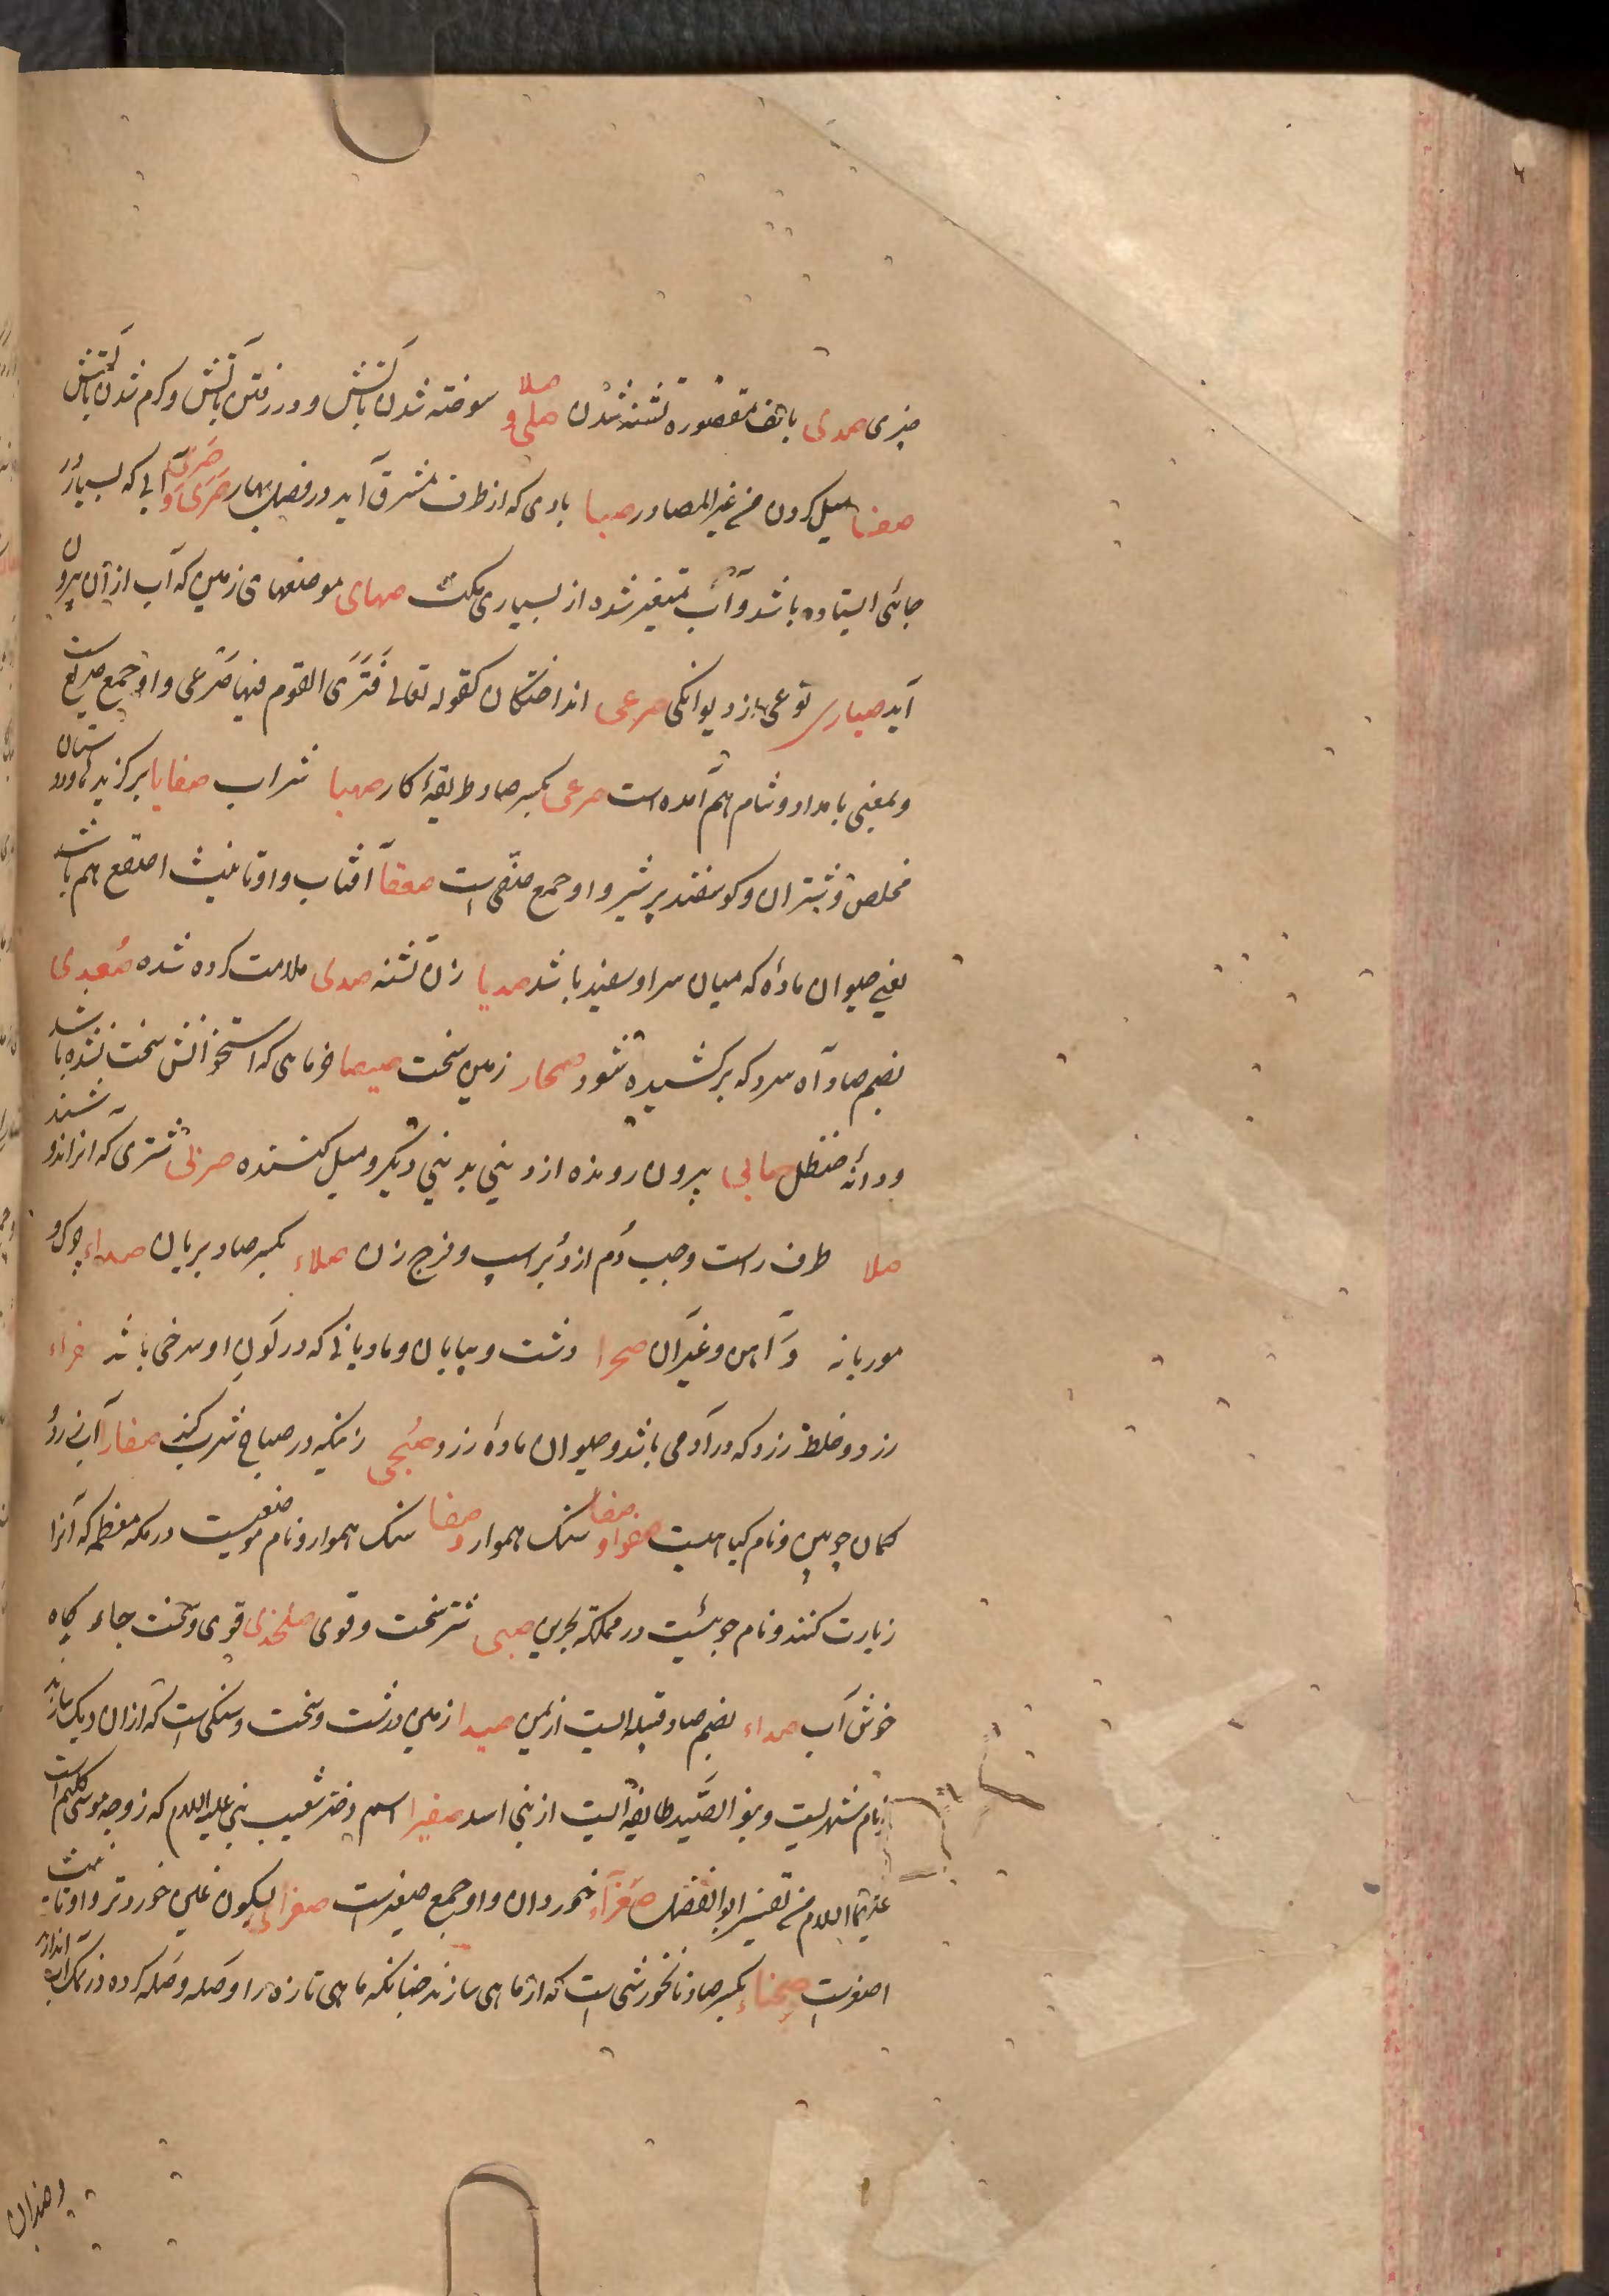 چیزی صدی بالف مقصوره تشنه شدن صلی و صلا سوخته شدن بآتش و در رفتن بآتش و گرم شدن بآتش
صغنا میل کردن من غیر المصادر صبا بادی که از طرف مشرق آید در فصل بهار صَرَی و صَرَیٰ آبی که بسیار در
جائی ایستاده باشد و آب متغیر شده از بسیاری مکث صهای موضعهای زمین که آب از آن بیرون
آید صباری نوعی از دیوانگی صرعی انداختگان کقوله تعالی فَتَرَی القوم فیها صَرْعی و او جمع صریع ست
و بمعنی بامداد و شام هم آمده است صرعی بکسر صاد طریقهٔ کار صهبا شراب صفایا برگزیده و دوستان
مخلص و شتران و گوسفند پر شیر و او جمع صفی است صقعا آفتاب و او تانیث اصقع هم باشد
یعنی حیوان مادهٔ که میان سر او سفید باشد صدیا زن تشنه صدی ملامت کرده شده صُعدی
بضم صاد آه سرد که برکشیده شود صحار زمین سخت صیصا خرماهی که استخوانش سخت نشده باشد
و دانهٔ حنظل صابی بیرون رونده از دینی بدینی دیگر و میل کننده شتری که انرا اندو
صلا طرف راست و جیب دُم از دُبر اسپ و فرج زن صلاء بکسر صاد بریان صداء چرک و
موریانه و آهن و غیر آن صحرا دشت و بیابان و مادیانی که در لون او سرخی باشد
زرد و خلط زرد که در آدمی باشد و حیوان مادهٔ زرد صُبحی زنیکه در صباح شرب کند صفارا
کمان چوبین و نام گیاهیست صفوا و صفا سنگ هموار و صفا سنگ هموار و نام موضعیست در مکه معظمه که آنرا
زیارت کنند و نام جوئیست در مملکة بحرین شتر سخت و قوی صلخدی قوی و سخت جاء گیاه
خوش آب صداء بضم صاد قبیله ایست از یمن صیدا زمین درشت و سخت و سنگی است که از ان دیک سازند
نام شهریست و بنو الصّید طایفهٔ ایست از بنی اسد صفیرا اسم دختر شعیب نبی علیه السلام که زوجه موسی کلیم است
علیهما السلام من تفسیر ابو الفضل صُغَرآء خوردان و او جمع صغیر است صغری بسکون غین خوردتر و او تانیث
اصغر است صِحناء بکسر صاد نانخورشی است که از ماهی سازند چنانکه ماهی تازه را وصله وصله کرده در نمک آب اندازند